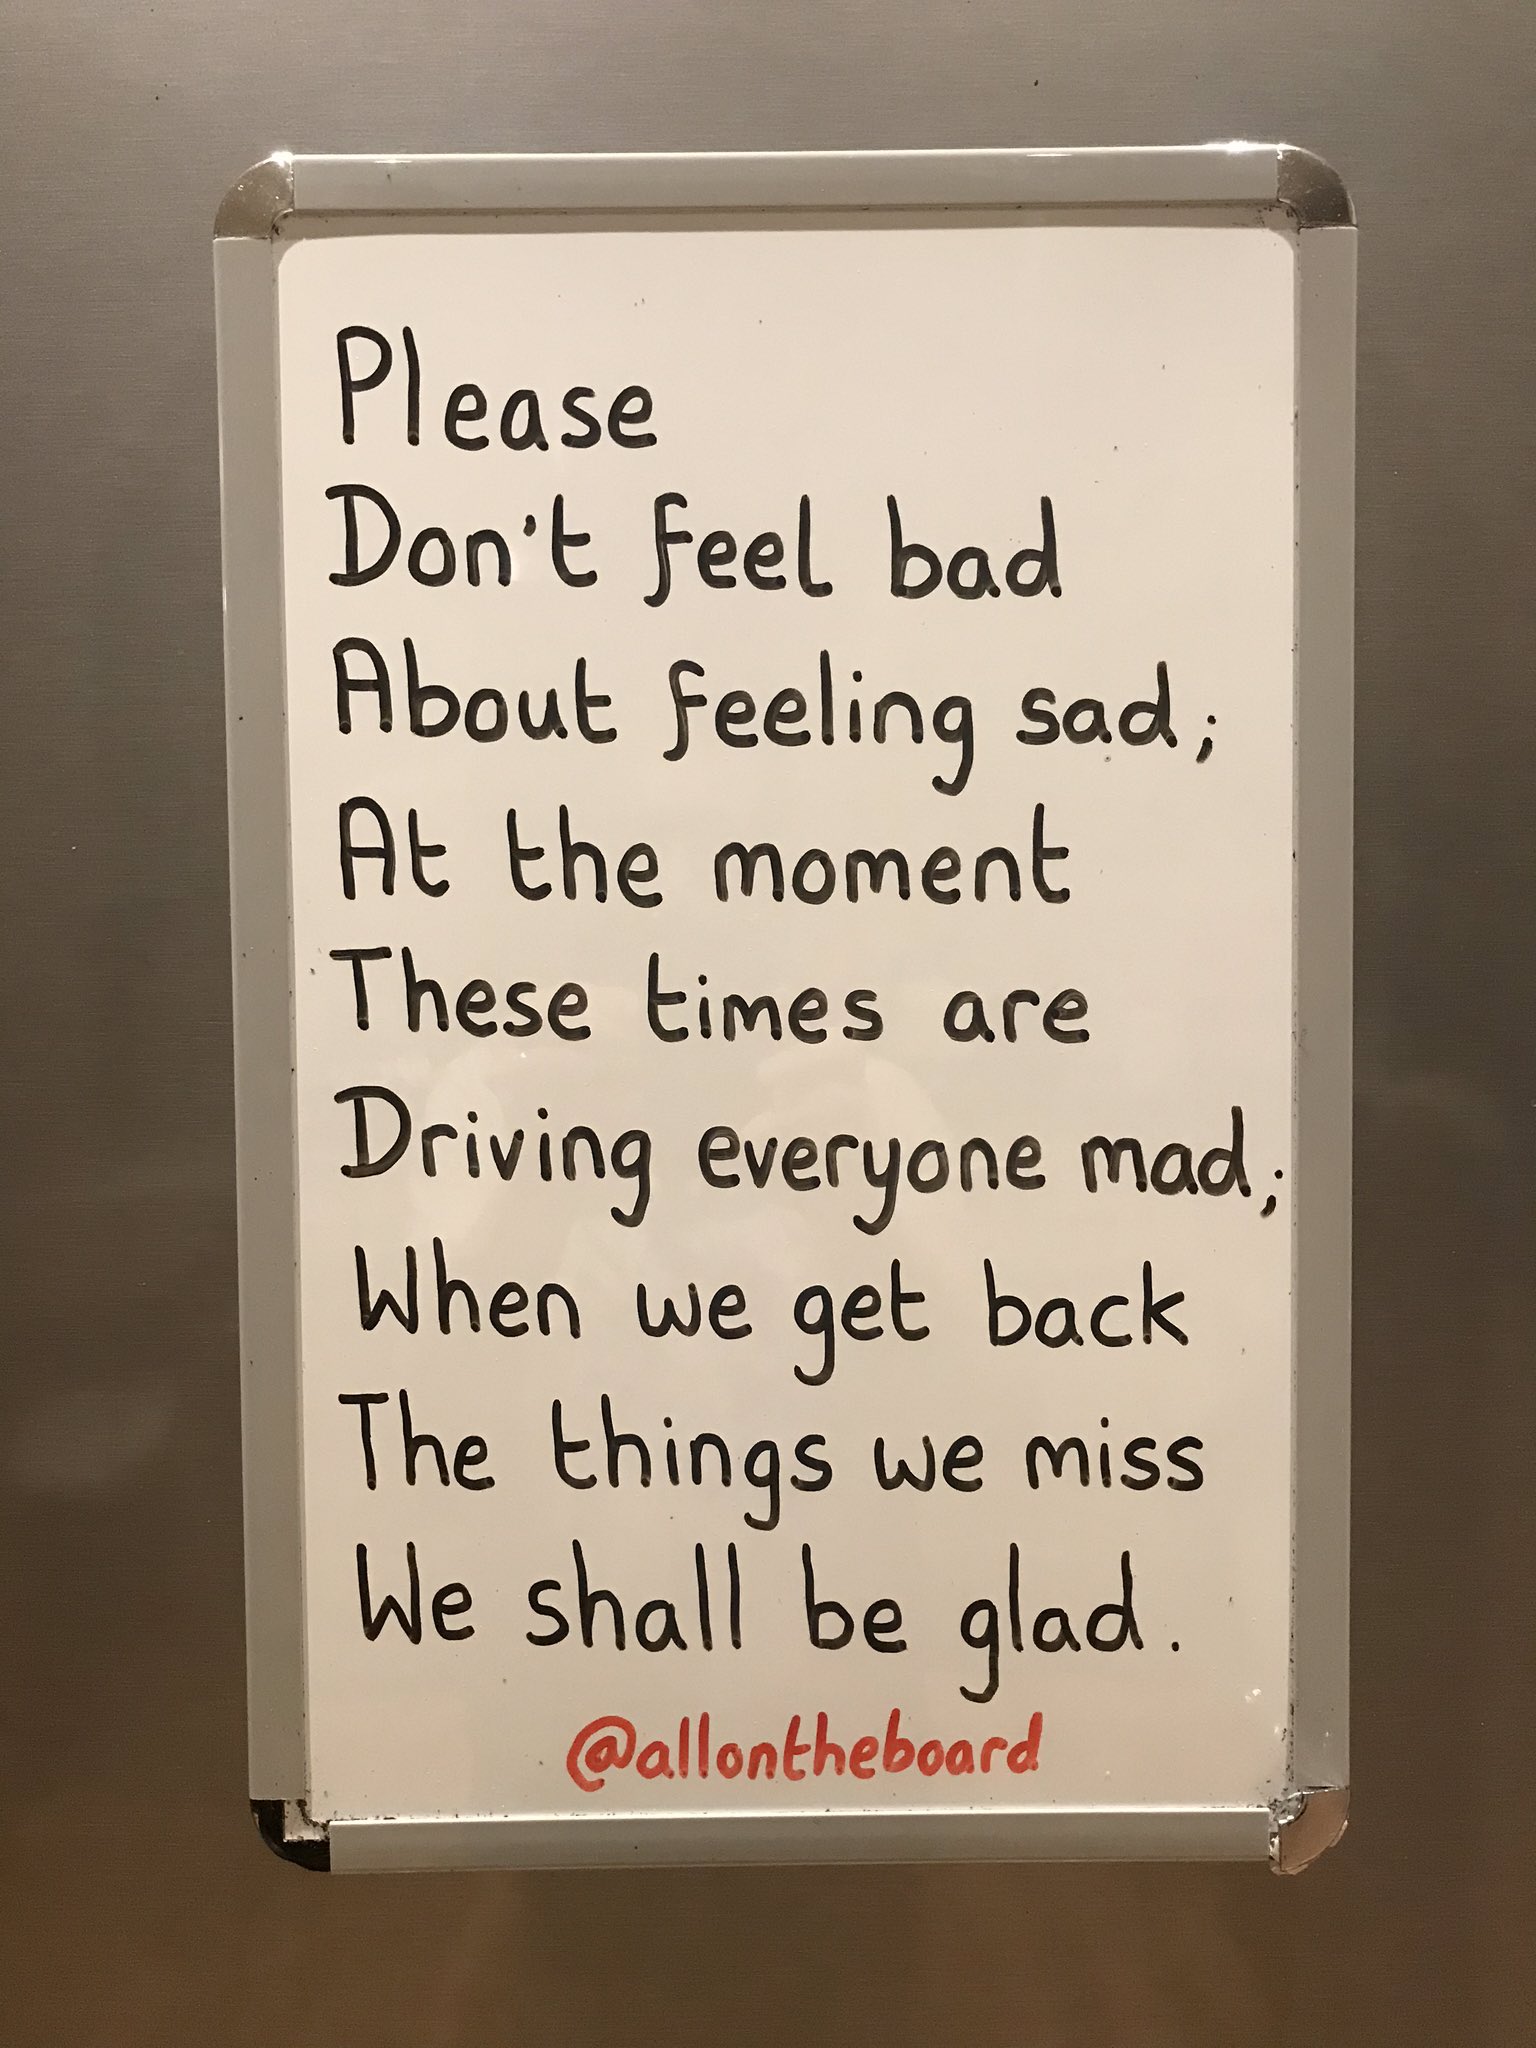 Please
Don't feel bad
About feeling sad;
At the moment
These times are
Driving everyone mad;
When we get back
The things we miss
We shall be glad.
@allontheboard